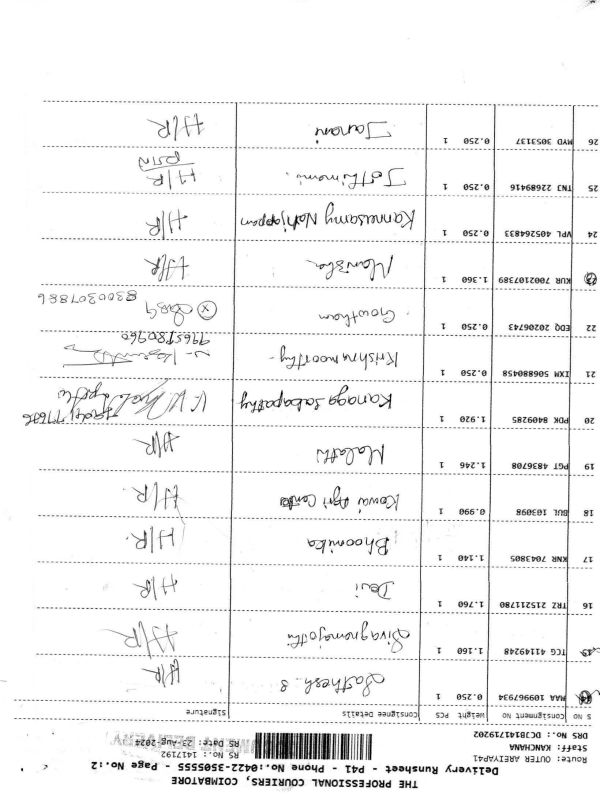 THE PROFESSIONAL COURIERS, COIMBATORE
Delivery Runsheet - P41 - Phone No.:0422-3505555 - Page No.:2
Route: OUTER AREIYAP41
Staff: KANCHANA RS No.: 1417192
DRS No.: DCJB141719202 RS Date: 23-Aug-2024
S NO Consignment NO Weight PCS Consignee Details Signature
14 MAA 109967934 0.250 1 Sathesh S H/R
15 TCG 41149248 1.160 1 Sivagnanajothi H/R
16 TRZ 215211780 1.760 1 Devi H/R
17 KNR 7043805 1.140 1 Bhoomika H/R.
18 BUL 103098 0.990 1 Kovai Agri H/R.
19 PGT 4836708 1.246 1 Malathi H/R
20 PDK 8409285 1.920 1 Kanaga Sabapathy
21 IXM 50680458 0.250 1 Krishnamoorthy -
22 EDQ 20206743 0.250 1 Gowtham 8300307886
23 KUR 7002107389 1.360 1 Manisha H/R
24 VPL 405264833 0.250 1 Kannusamy H/R
25 TNJ 22689416 0.250 1 Jothimani. H/R
26 MYD 3053137 0.250 1 Janani H/R